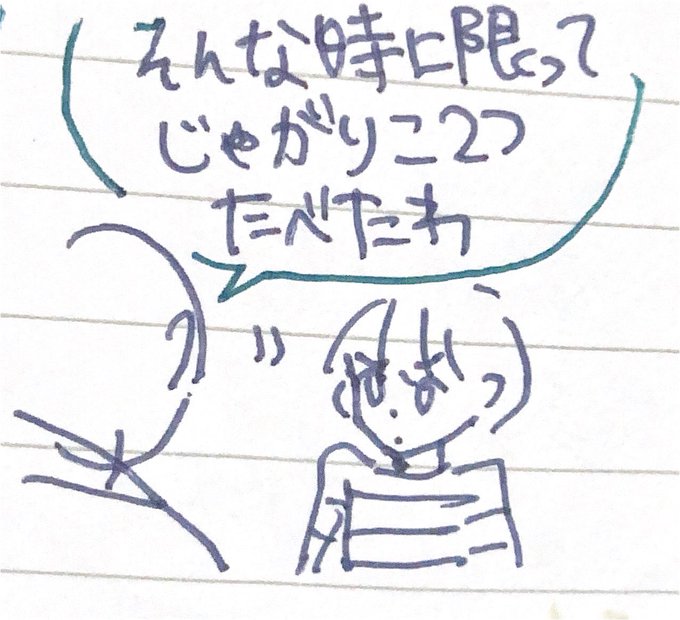 そんな時に限って
じゃがりこ2つ
たべたわ